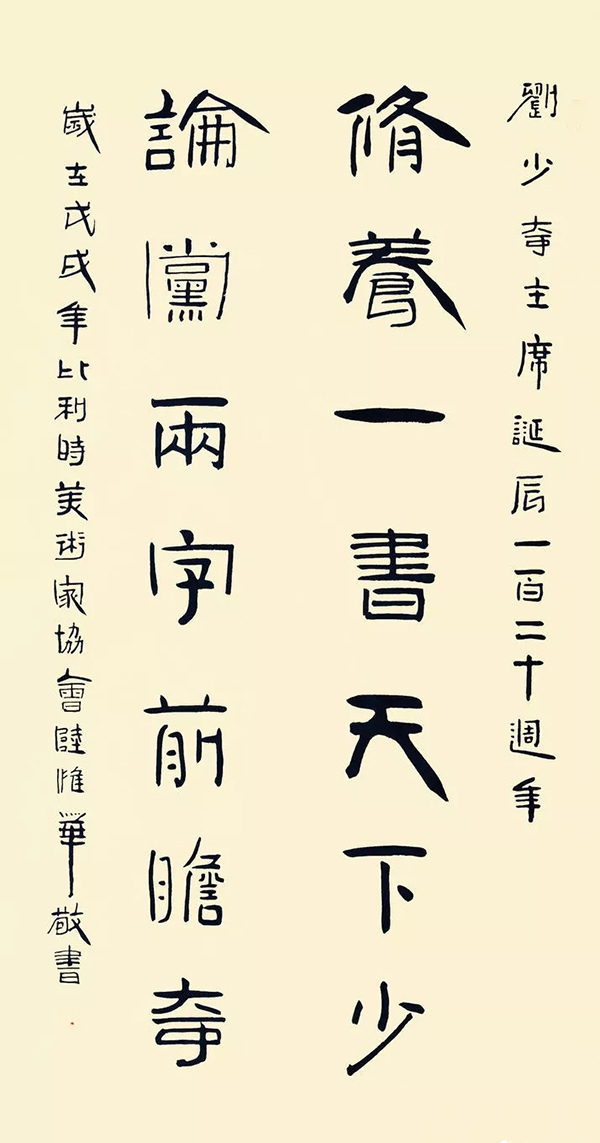 劉少奇主席誕辰一百二十週年
脩養一書天下少
論黨兩字前瞻奇
歲在戊戌年比利時美術家協會陸惟華敬書